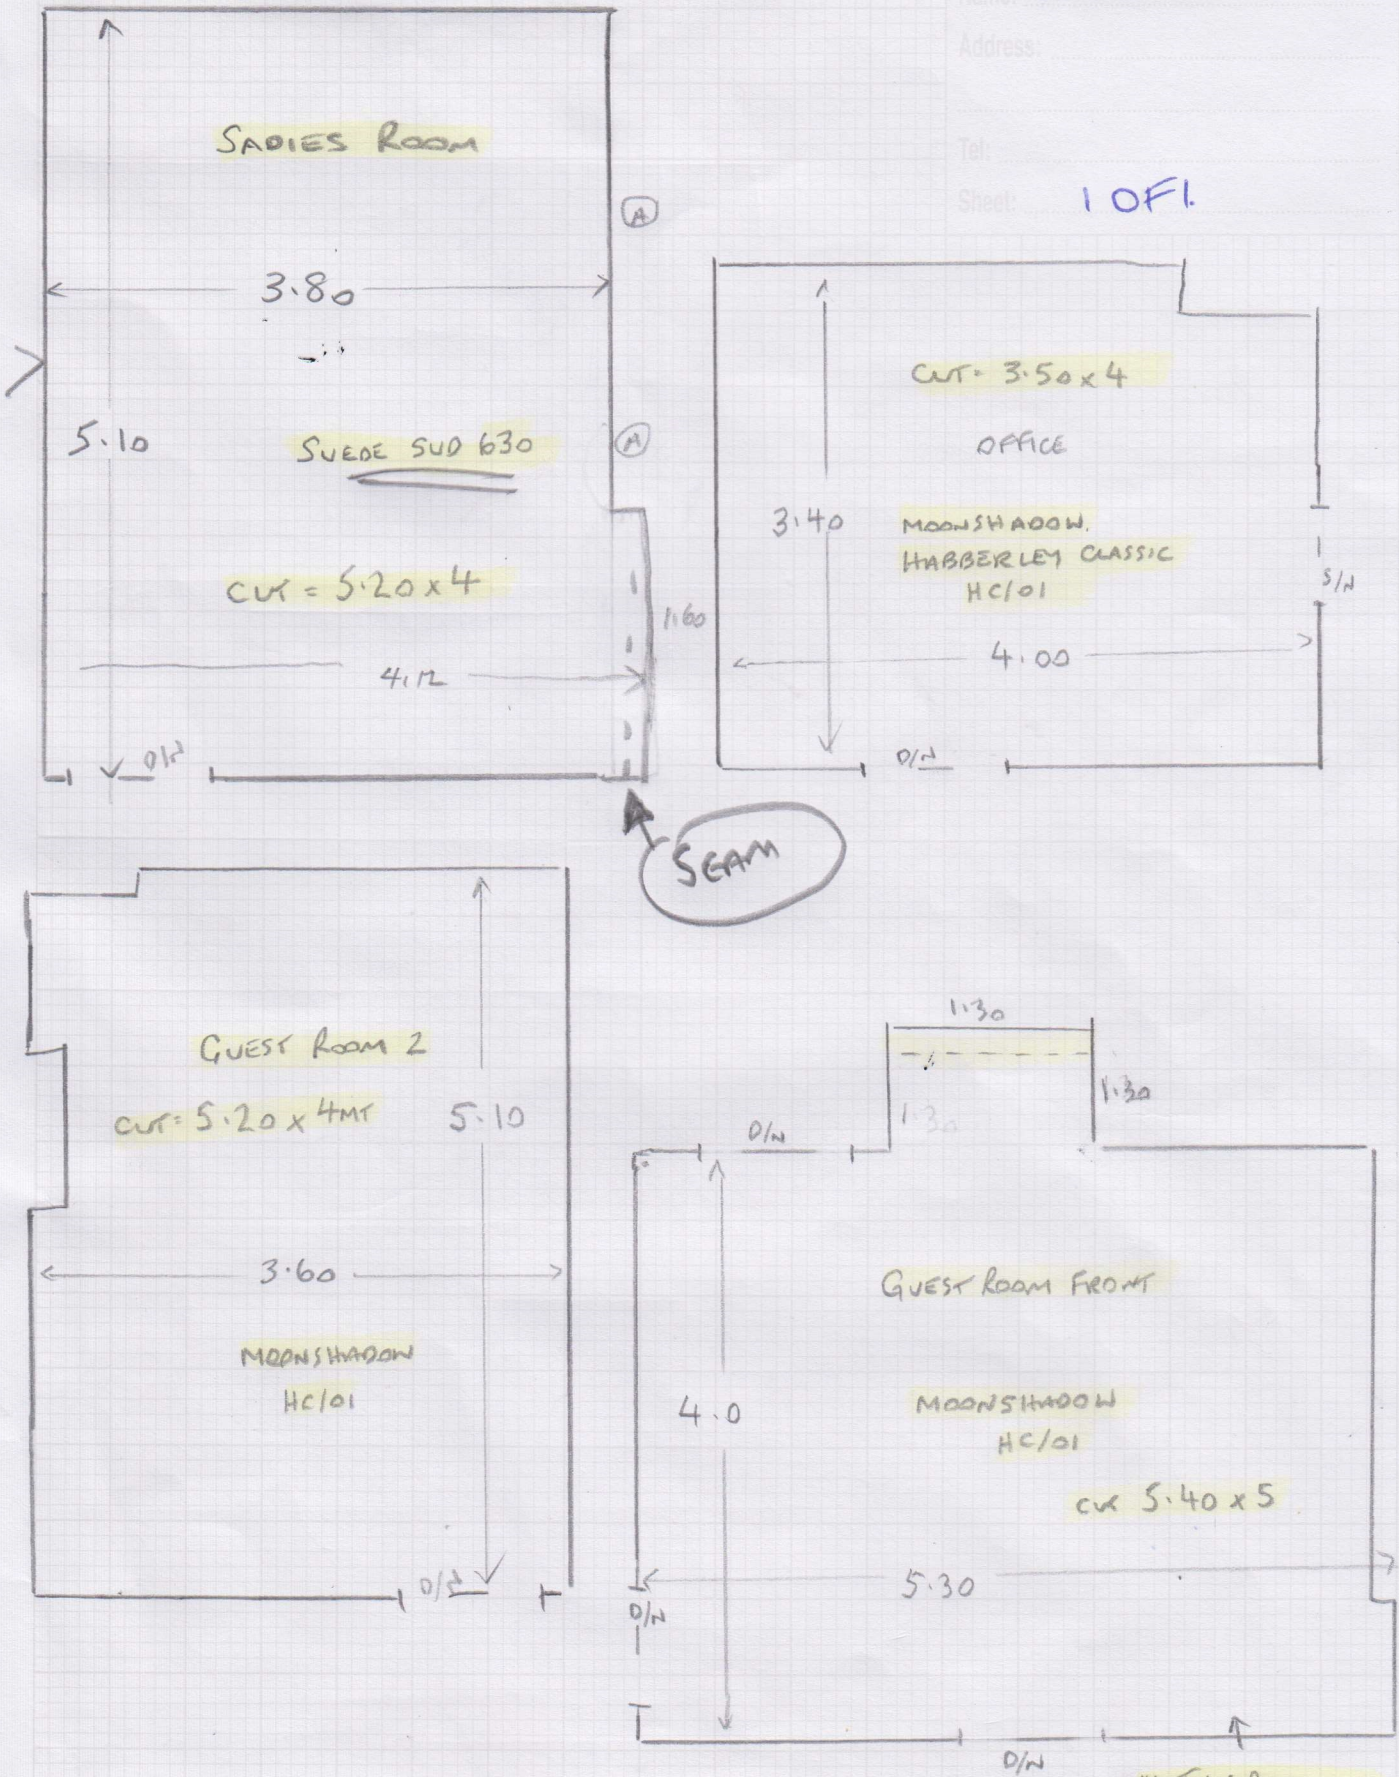 Name:
Address:
Tel:
Sheet: 1 OF 1.
SADIES ROOM
A
3.80
5.10
SUEDE SUD 630
A
CUT = 5.20 x 4
1.60
4.12
D/N
SEAM
CUT = 3.50 x 4
OFFICE
3.40
MOONSHADOW.
HABBERLEY CLASSIC
HC/01
S/N
4.00
D/N
GUEST ROOM 2
CUT = 5.20 x 4MT
5.10
3.60
MOONSHADOW
HC/01
D/N
1.30
1.30
1.30
D/N
GUEST ROOM FRONT
4.0
MOONSHADOW
HC/01
CUT 5.40 x 5
5.30
D/N
D/N